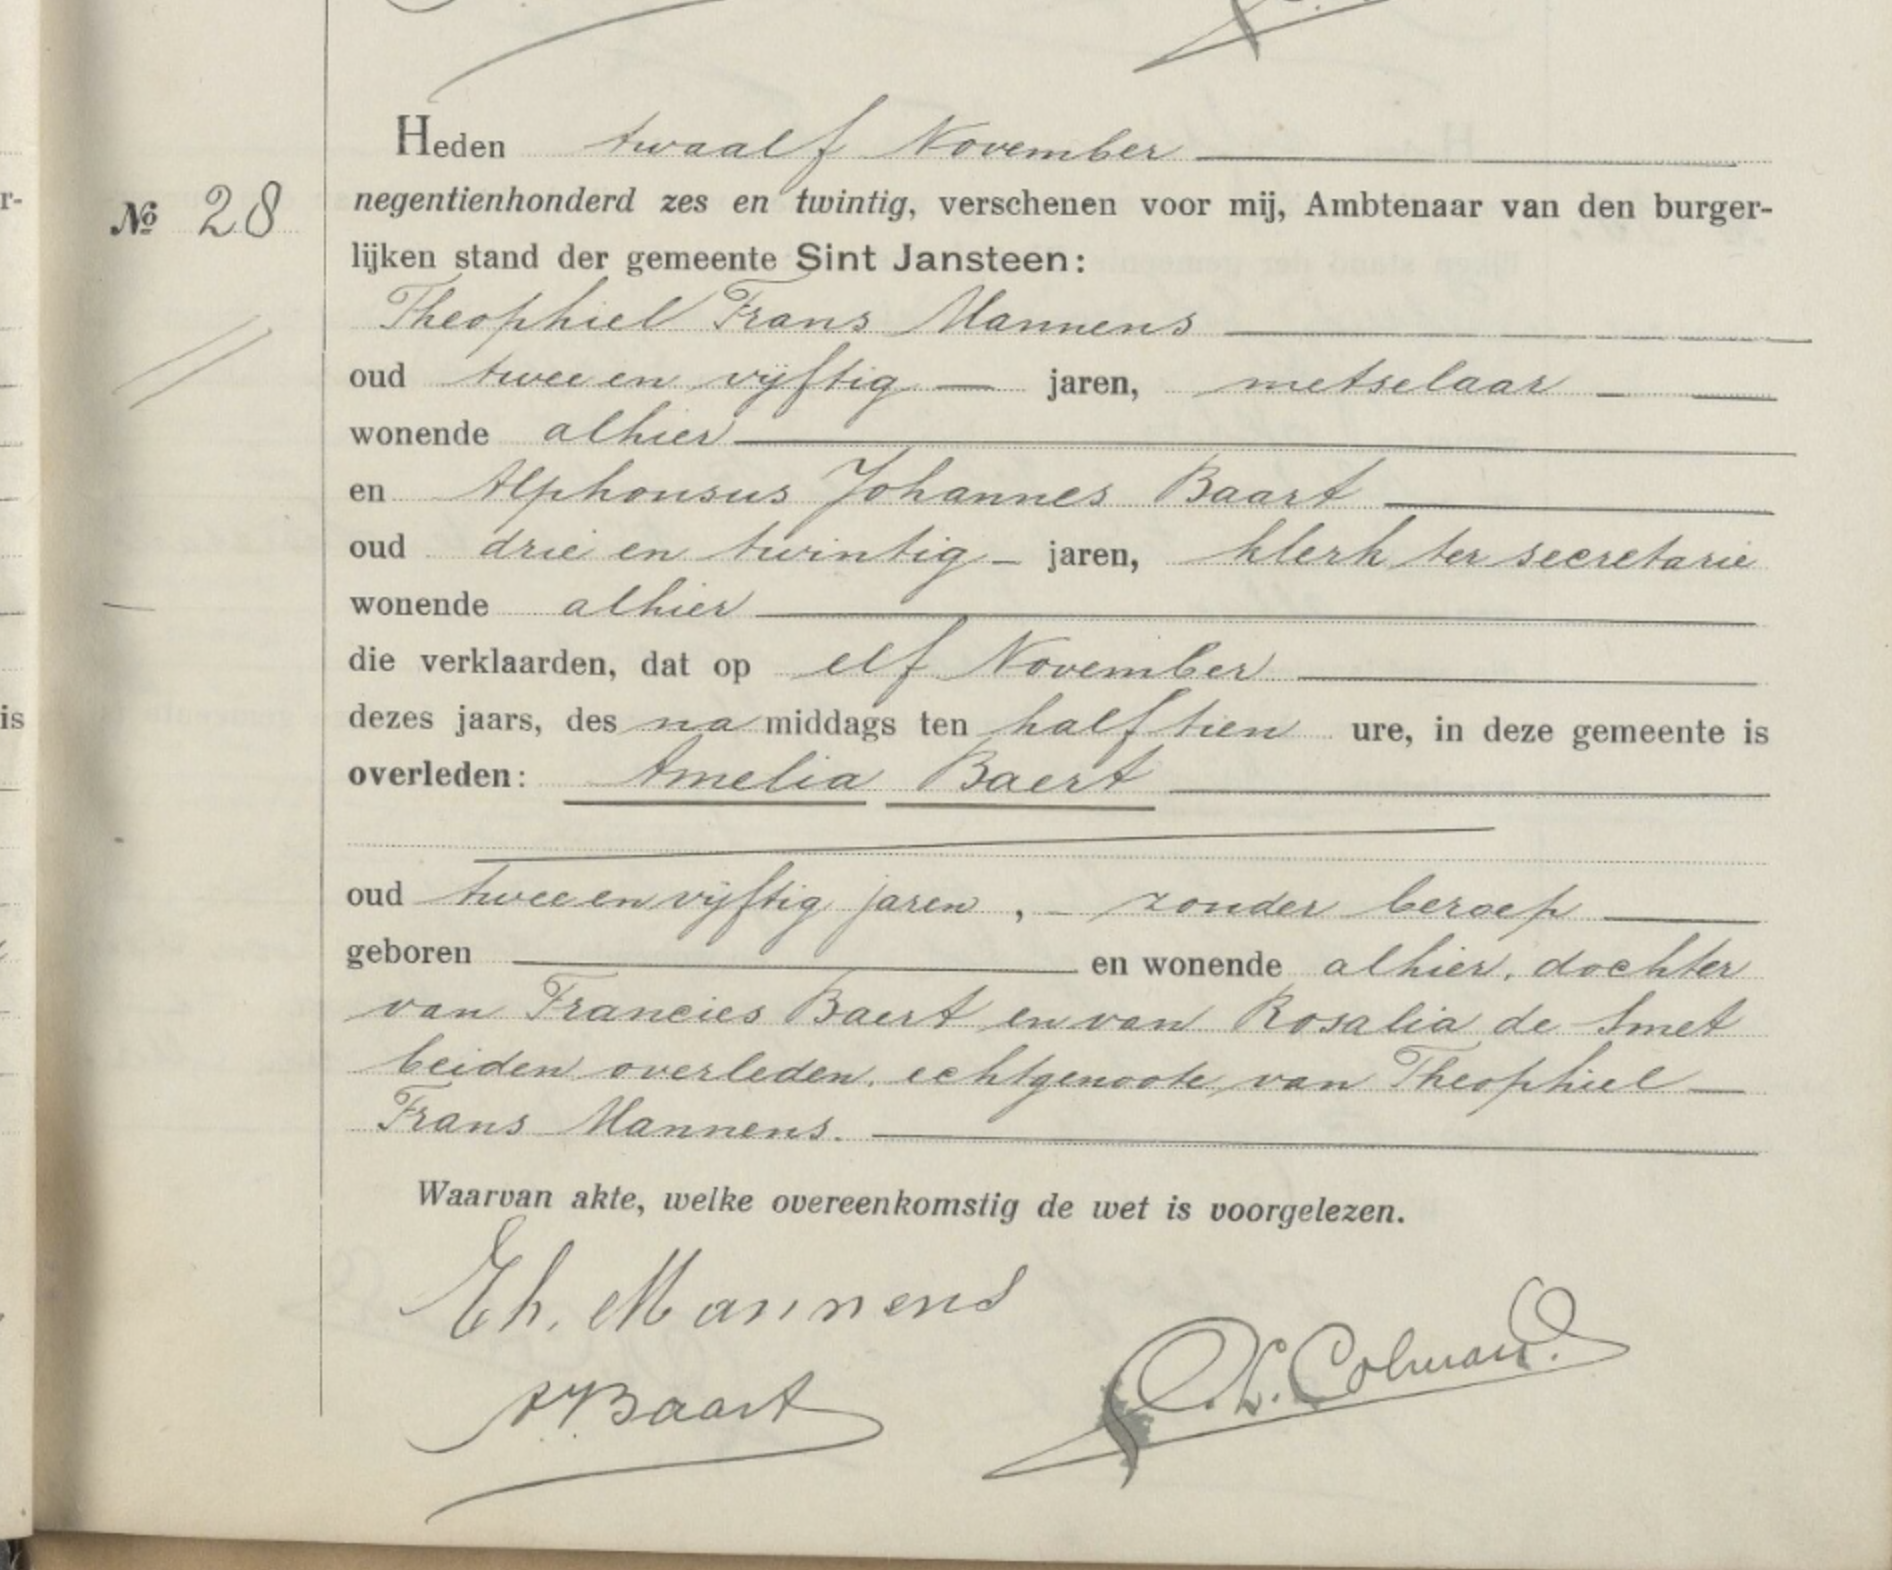 Heden twaalf November
No 28
negentienhonderd zes en twintig, verschenen voor mij, Ambtenaar van den burger-
lijken stand der gemeente Sint Jansteen:
Theophiel Frans Mannens
oud twee en vijftig jaren, metselaar
wonende alhier
en Alphonsus Johannes Baart
oud drie en twintig jaren, klerk ter secretarie
wonende alhier
die verklaarden, dat op elf November
dezes jaars, des na middags ten half tien ure, in deze gemeente is
overleden: Amelia Baert
oud twee en vijftig jaren, zonder beroep
geboren en wonende alhier, dochter
van Francies Baert en van Rosalia de Smet
beiden overleden, echtgenoote van Theophiel
Frans Mannens.
Waarvan akte, welke overeenkomstig de wet is voorgelezen.
Th. Mannens
Baart
Colman
r-
is